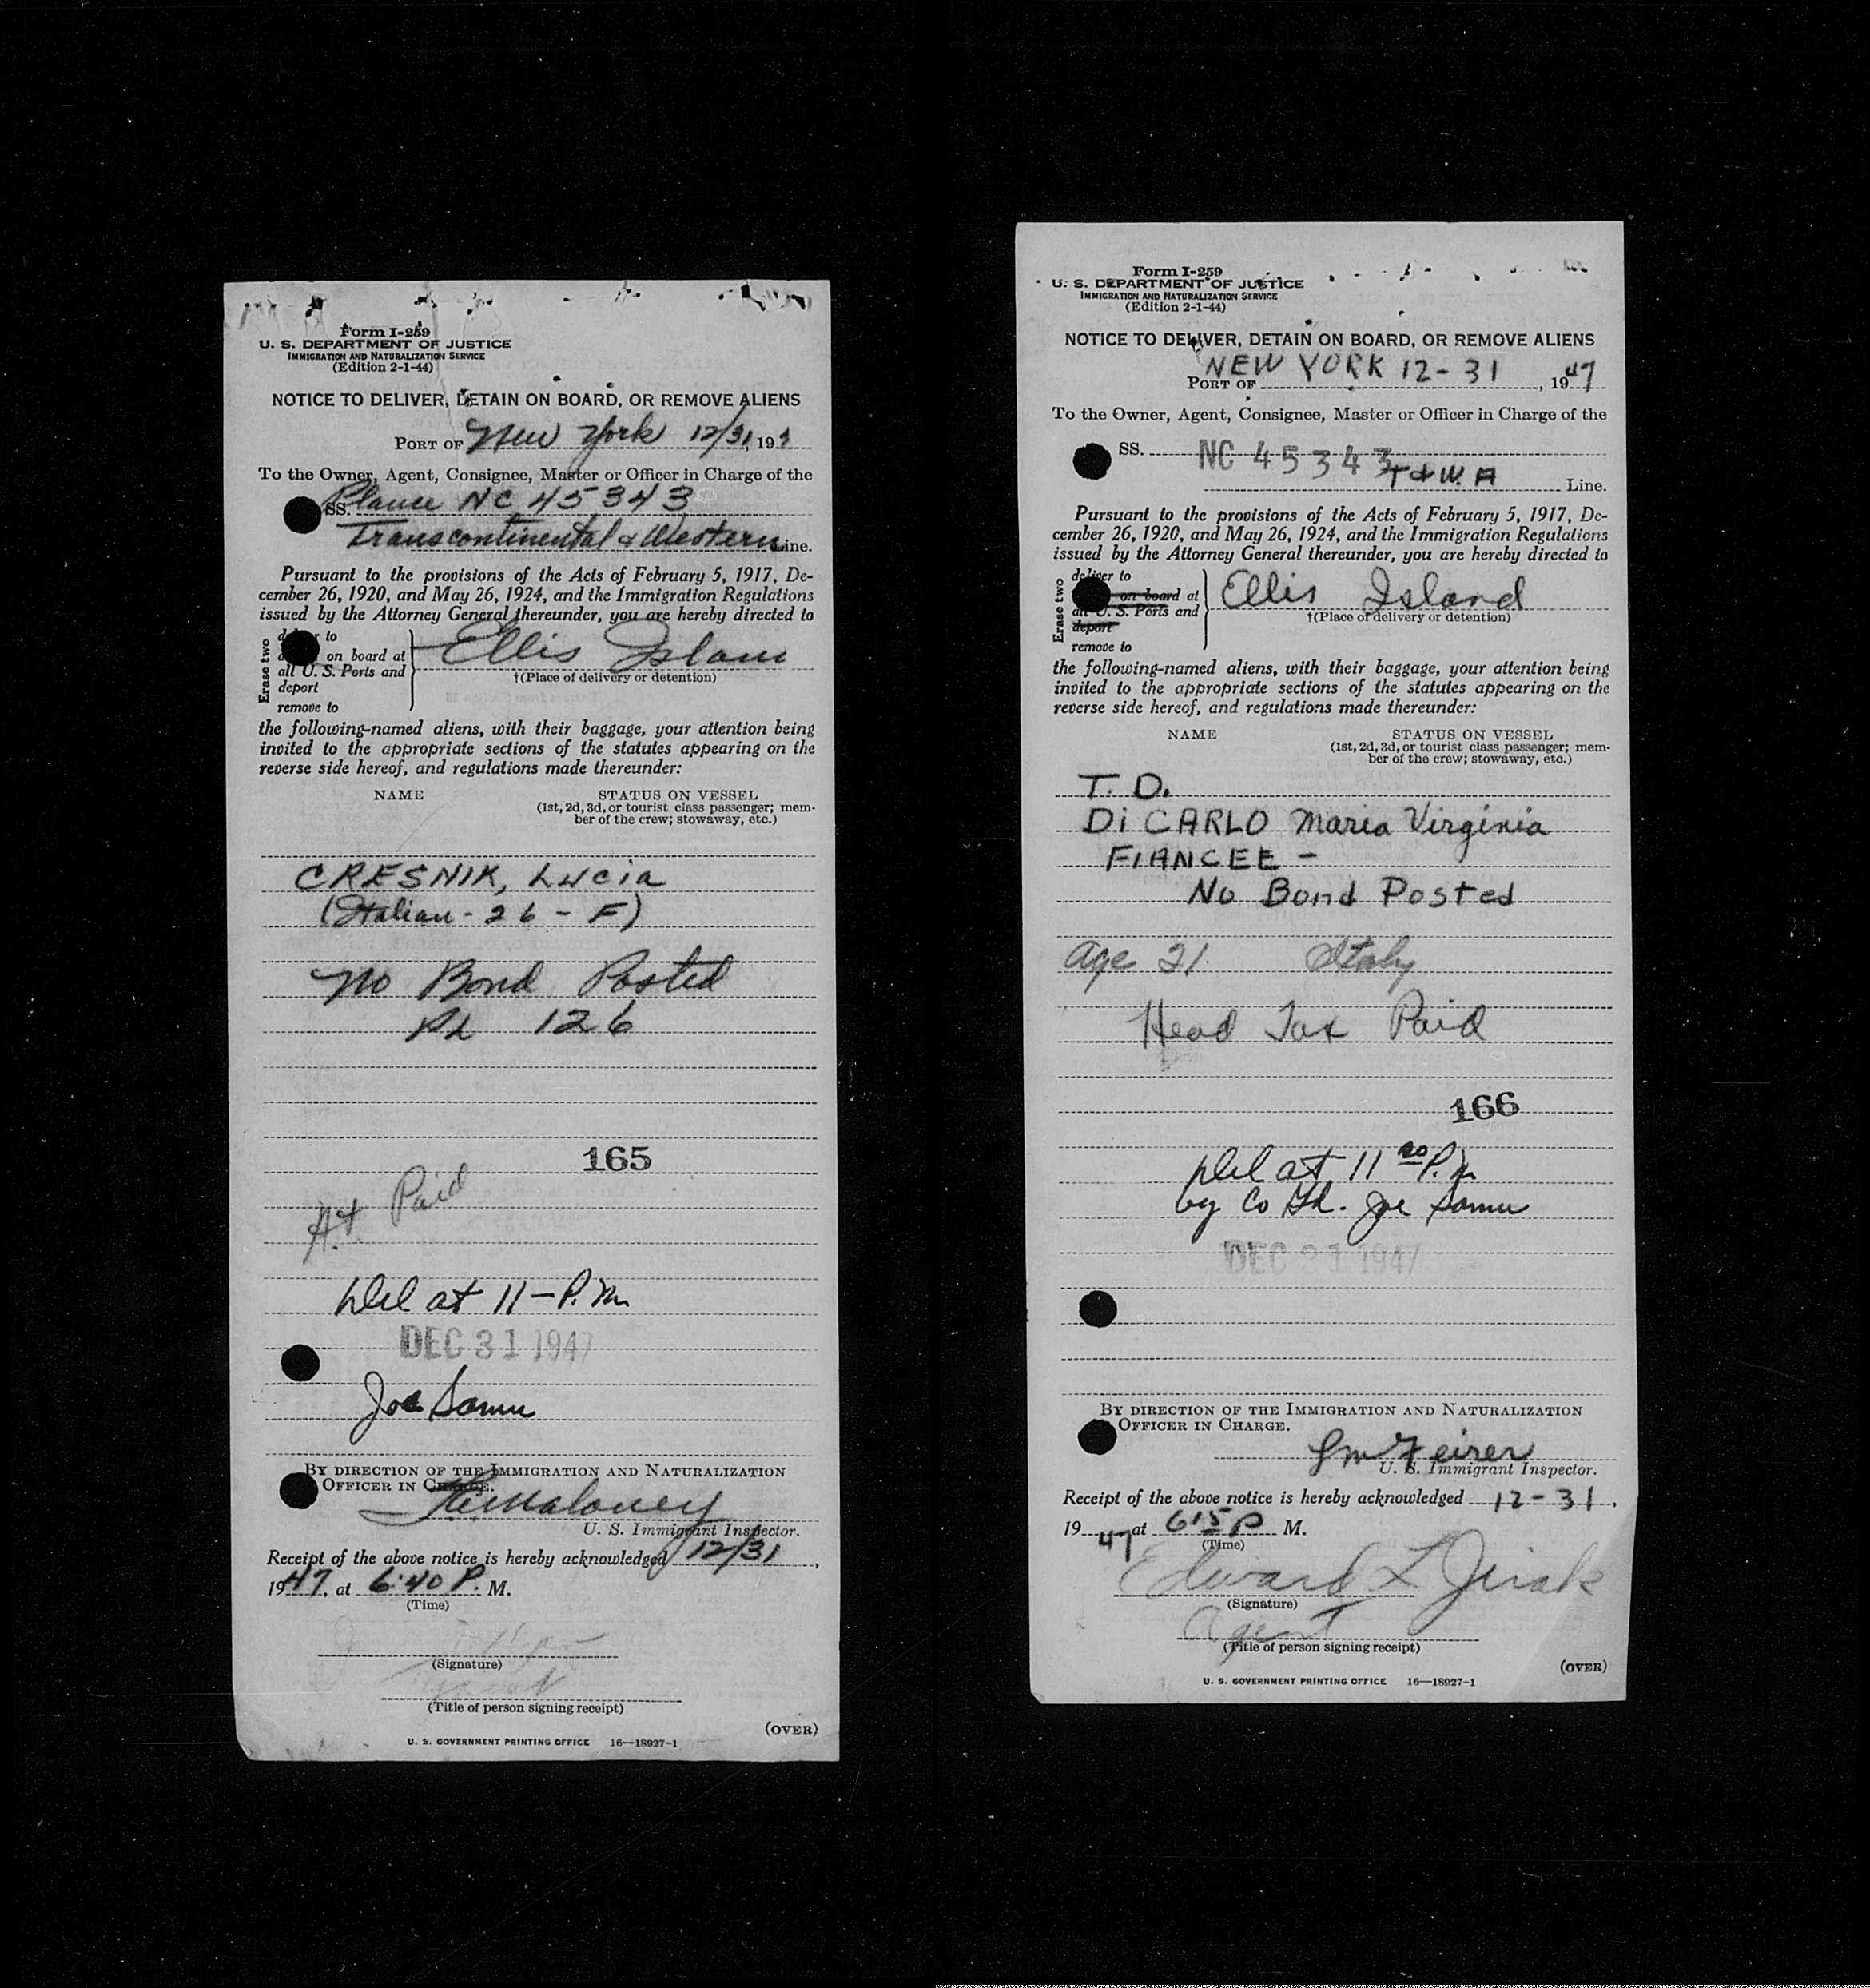 Form I-259
U. S. DEPARTMENT OF JUSTICE
IMMIGRATION AND NATURALIZATION SERVICE
(Edition 2-1-44)
NOTICE TO DELIVER, DETAIN ON BOARD, OR REMOVE ALIENS
PORT OF New York 12/31, 19
To the Owner, Agent, Consignee, Master or Officer in Charge of the
SS. Plane NC 45343
Transcontinental & Western Line.
Pursuant to the provisions of the Acts of February 5, 1917, De-
cember 26, 1920, and May 26, 1924, and the Immigration Regulations
issued by the Attorney General thereunder, you are hereby directed to
Erase two
to
on board at
all U. S. Ports and
deport
remove to
Ellis Islan
†(Place of delivery or detention)
the following-named aliens, with their baggage, your attention being
invited to the appropriate sections of the statutes appearing on the
reverse side hereof, and regulations made thereunder:
NAME STATUS ON VESSEL
(1st, 2d, 3d, or tourist class passenger; mem-
ber of the crew; stowaway, etc.)
CRESNIK, Lucia
(Italian - 26 - F)
No Bond Posted
126
165
H.t Paid
Del at 11 - P.M
DEC 31 1947
Joe Samu
BY DIRECTION OF THE IMMIGRATION AND NATURALIZATION
OFFICER IN CHARGE.
Maloney
U. S. Immigrant Inspector.
Receipt of the above notice is hereby acknowledged 12/31,
1947, at 6:40 P. M.
(Time)
(Signature)
(Title of person signing receipt)
(OVER)
U. S. GOVERNMENT PRINTING OFFICE 16—18927-1
Form I-259
U. S. DEPARTMENT OF JUSTICE
IMMIGRATION AND NATURALIZATION SERVICE
(Edition 2-1-44)
NOTICE TO DELIVER, DETAIN ON BOARD, OR REMOVE ALIENS
PORT OF NEW YORK 12-31, 1947
To the Owner, Agent, Consignee, Master or Officer in Charge of the
SS. NC 45343
T & W. A Line.
Pursuant to the provisions of the Acts of February 5, 1917, De-
cember 26, 1920, and May 26, 1924, and the Immigration Regulations
issued by the Attorney General thereunder, you are hereby directed to
Erase two
deliver to
on board at
all U. S. Ports and
deport
remove to
Ellis Island
†(Place of delivery or detention)
the following-named aliens, with their baggage, your attention being
invited to the appropriate sections of the statutes appearing on the
reverse side hereof, and regulations made thereunder:
NAME STATUS ON VESSEL
(1st, 2d, 3d, or tourist class passenger; mem-
ber of the crew; stowaway, etc.)
T. D.
Di CARLO Maria Virginia
FIANCEE -
No Bond Posted
Age 21 Italy
Head Tax Paid
166
Del at 11 P.M
by Co Gd. Joe Samu
DEC 31 1947
BY DIRECTION OF THE IMMIGRATION AND NATURALIZATION
OFFICER IN CHARGE.
Feirer
U. S. Immigrant Inspector.
Receipt of the above notice is hereby acknowledged 12-31,
19 47 at 615 P M.
(Time)
Edward L Jirak
(Signature)
Agent
(Title of person signing receipt)
(OVER)
U. S. GOVERNMENT PRINTING OFFICE 16—18927-1